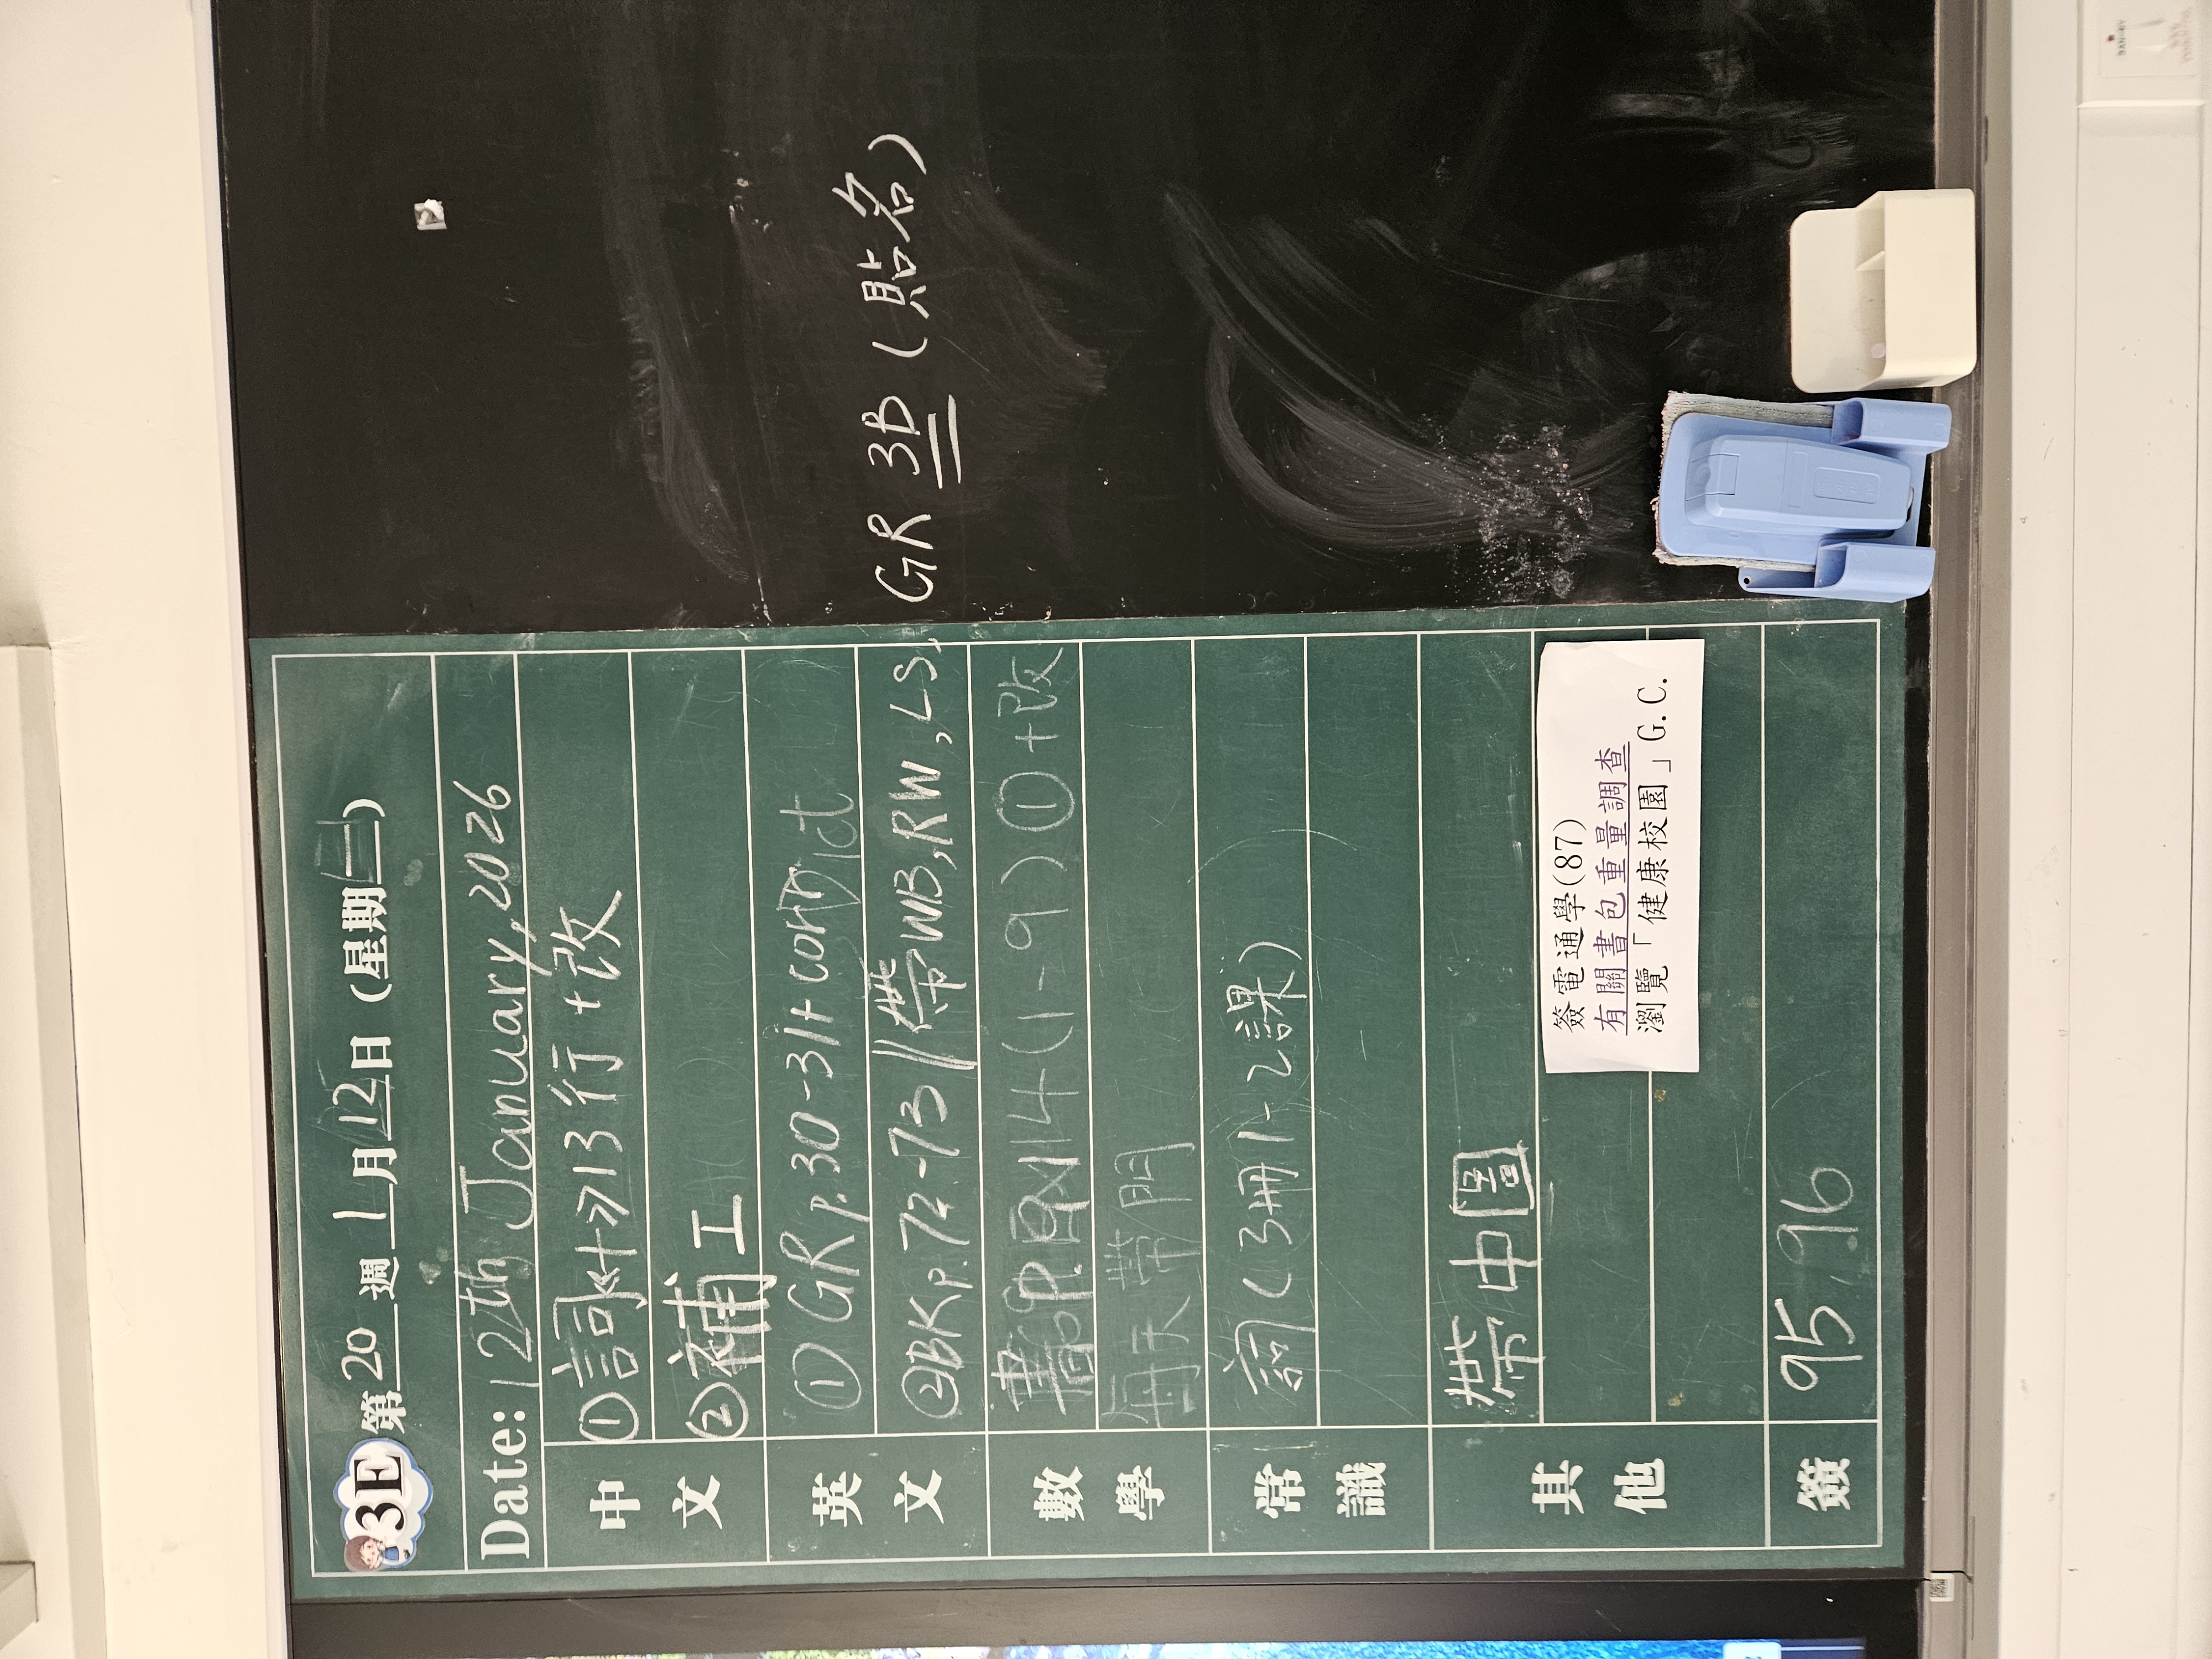 3E 第 20 週 1 月 12 日 (星期一)
Date: 12th January, 2026
中文 ① 詞 13行+改
② 補工
英文 ① GR p.30-31+corr, dict
② BK p.72-73 // 帶WB, RW, LS,
GR 3B (貼名)
數學 書P. 14 (1-9) ① +改
每天帶
常識 (3冊1-2課)
其他 帶中圖
簽電通學(87)
有關書包重量調查
瀏覽「健康校園」G.C.
簽 95, 96